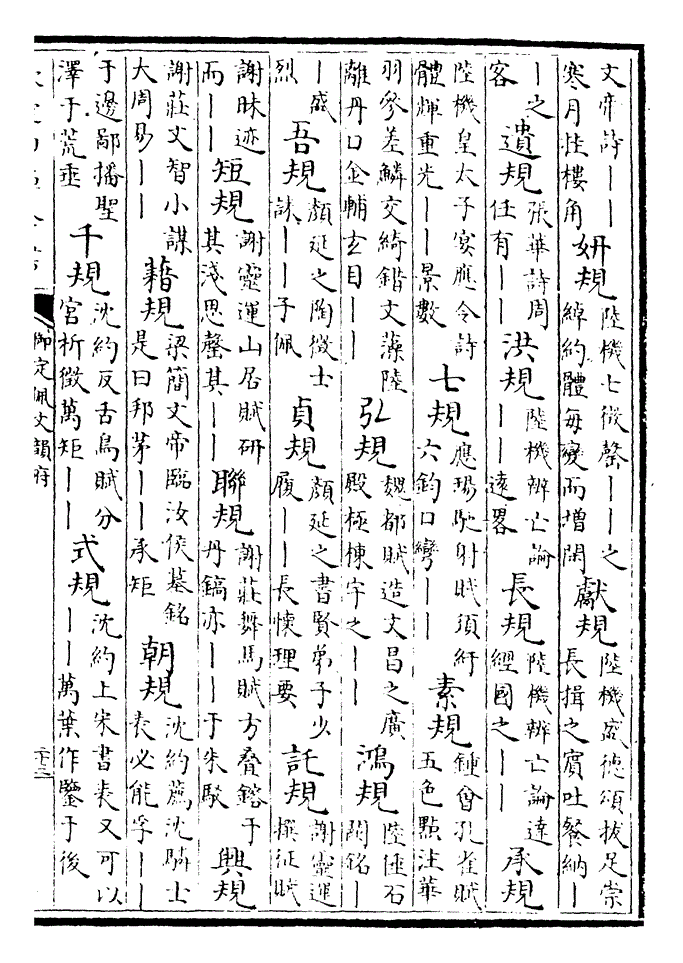 文帝詩丨丨
寒月挂樓角
妍規
陸機七徵罄丨丨之
綽約體每變而增閑
獻規
陸機盛德頌拔足崇
長揖之賓吐餐納丨
丨之
客
遺規
張華詩周
任有丨丨
洪規
陸機辨亡論
丨丨遠畧
長規
陸機辨亡論達
經國之丨丨
承規
陸機皇太子宴應令詩
體輝重光丨丨景數
七規
應瑒馳射賦須紆
六鈞口彎丨丨
素規
鍾會孔雀賦
五色點注華
羽參差鱗交綺錯文藻陸
離丹口金輔玄目丨丨
弘規
魏都賦造文昌之廣
殿極棟宇之丨丨
鴻規
陸倕石
闕銘丨
丨盛
烈
吾規
顏延之陶徵士
誄丨丨子佩
貞規
顏延之書賢弟子少
履丨丨長懷理要
託規
謝靈運
撰征賦
謝昧迹
而丨丨
短規
謝靈運山居賦研
其淺思罄其丨丨
聯規
謝莊舞馬賦方疊鎔于
丹鎬亦丨丨于朱駁
興規
謝莊文智小謀
大周易丨丨
藉規
梁簡文帝臨汝侯墓銘
是曰邦茅丨丨承矩
朝規
沈約薦沈驎士
表必能孚丨丨
于邊鄙播聖
澤于荒垂
千規
沈約反舌鳥賦分
宮析徵萬矩丨丨
式規
沈約上宋書表又可以
丨丨萬葉作鑒于後
御定佩文韻府